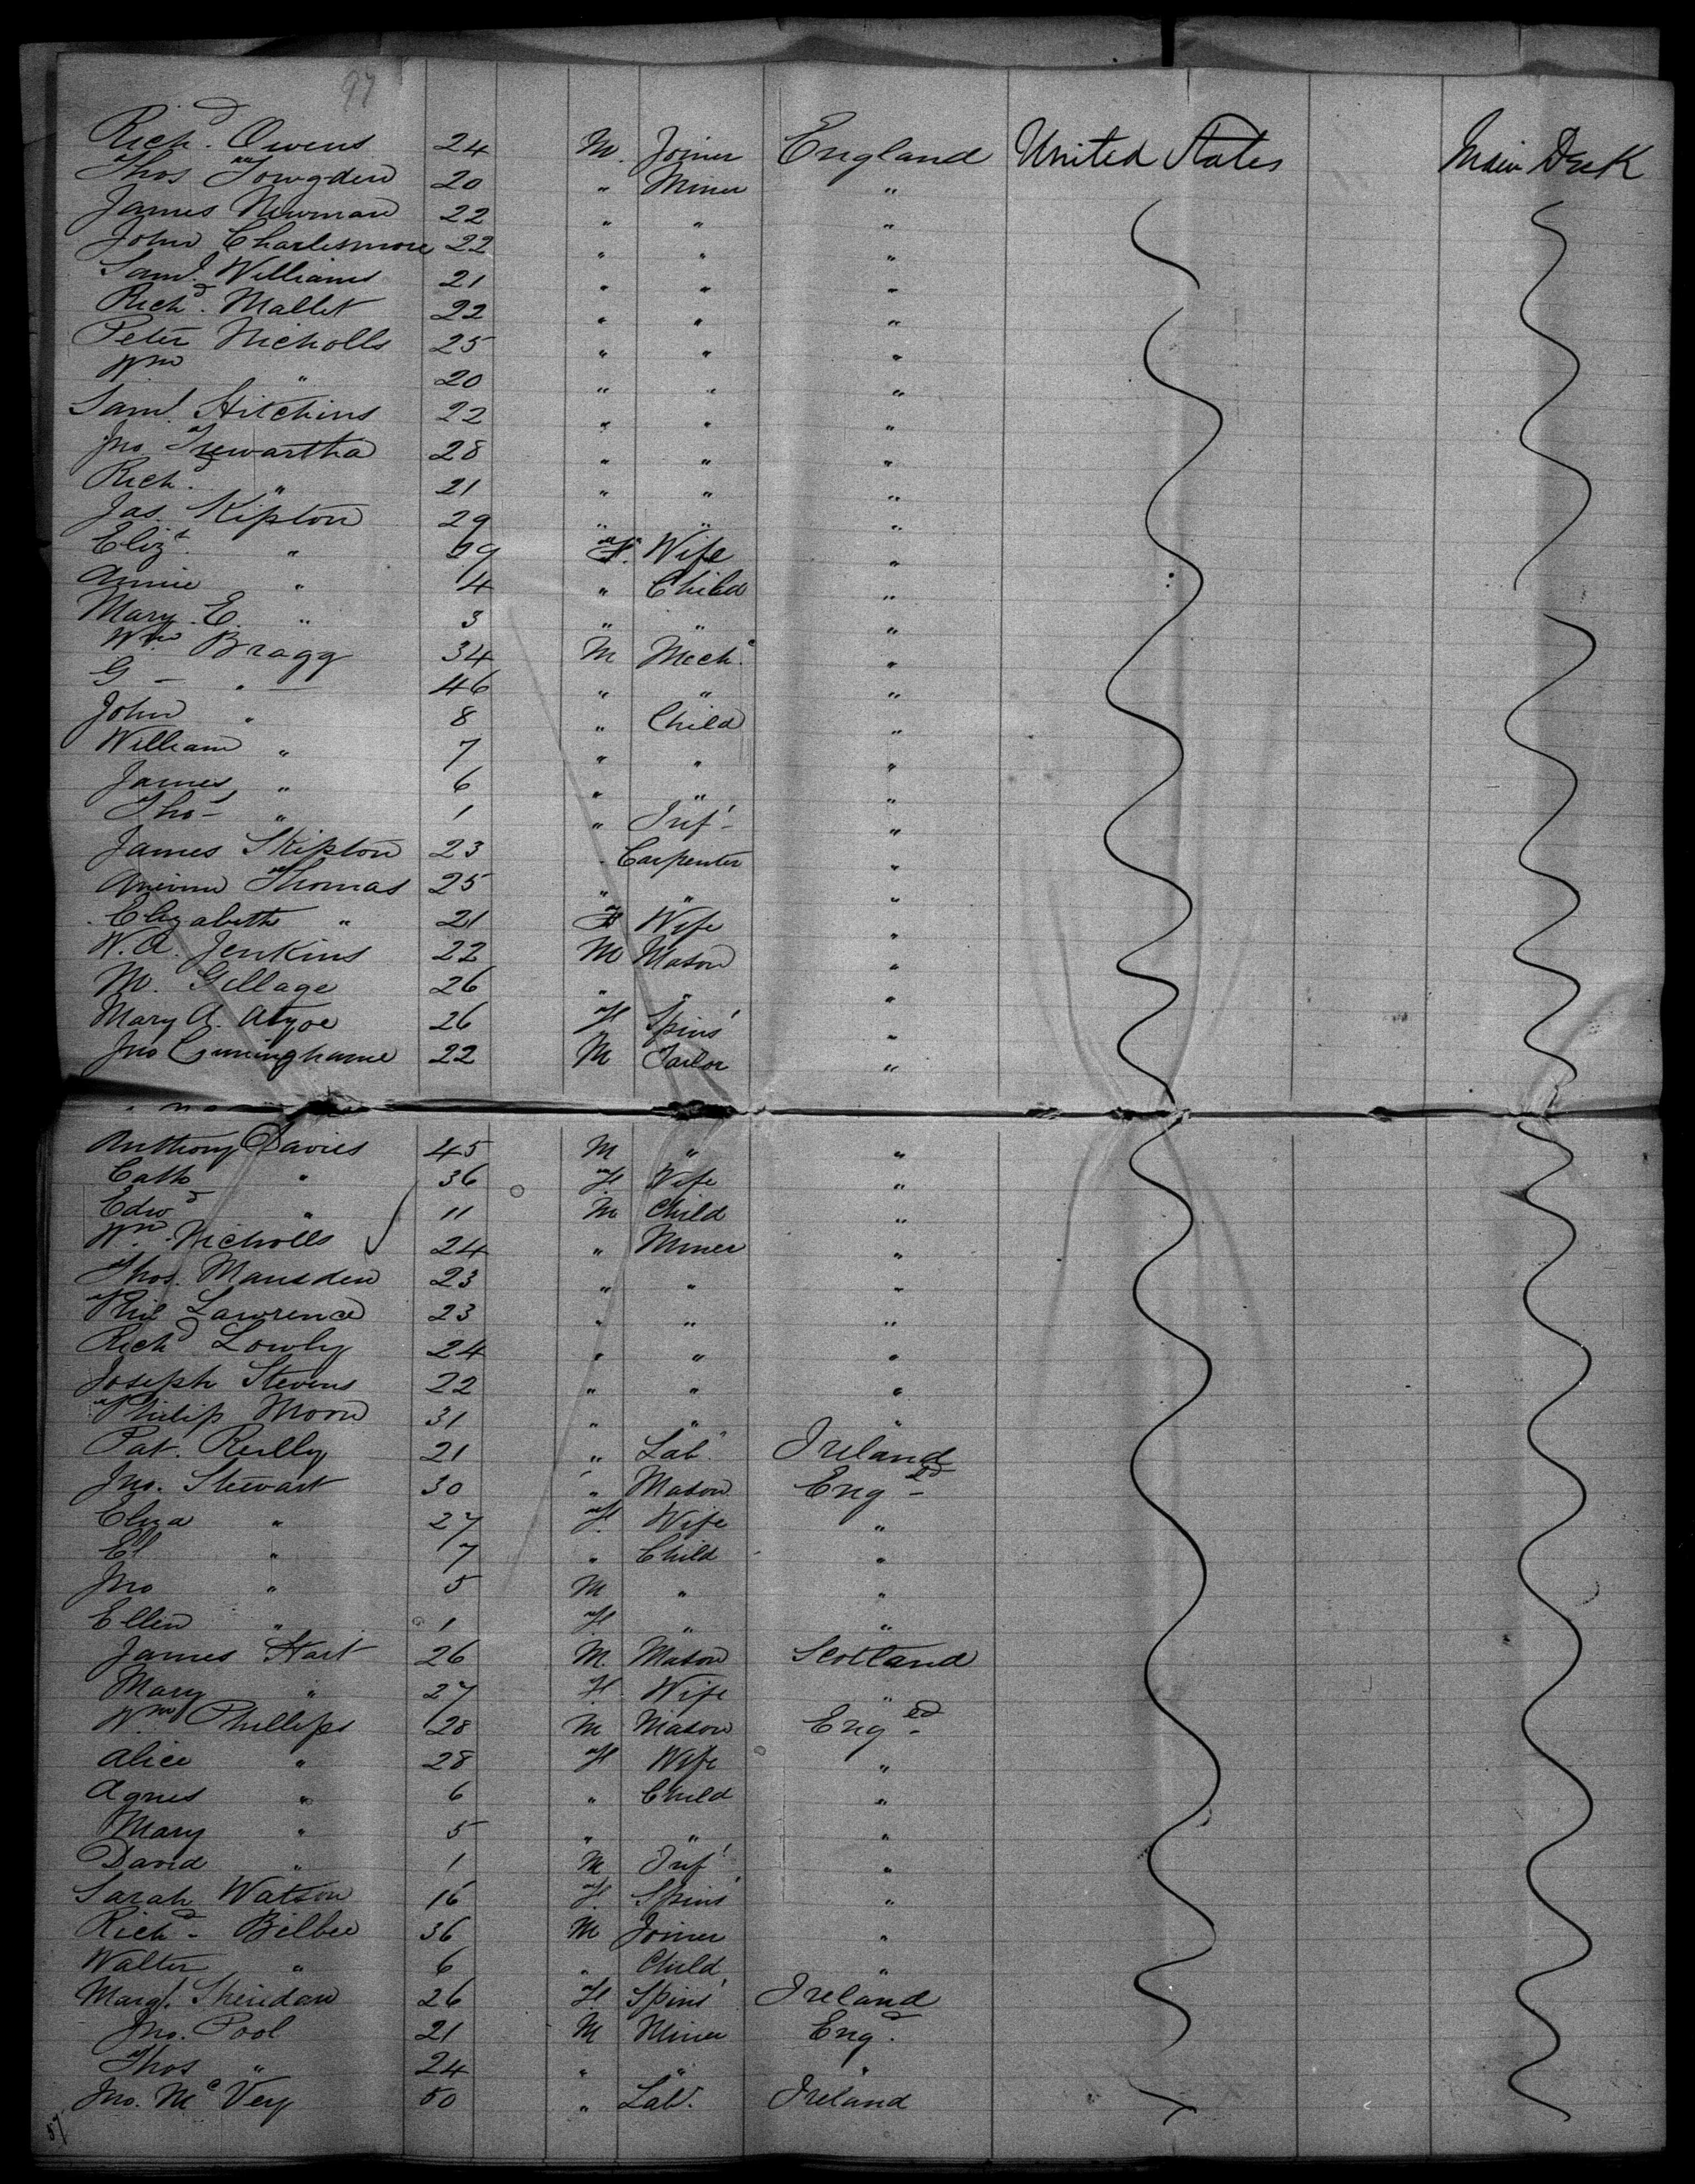 97
Richd. Owens 24 M. Joiner England United States Main Deck
Thos Towgden 20 " Miner "
James Newman 22 " " "
John Charlesmore 22 " " "
Saml. Williams 21 " " "
Richd. Mallet 22 " " "
Peter Nicholls 25 " " "
Wm " 20 " " "
Saml. Hitchins 22 " " "
Jno. Trewartha 28 " " "
Richd. " 21 " " "
Jas. Kipton 29 " " "
Elizt. " 29 F. Wife "
Annie " 4 " Child "
Mary E. " 3 " " "
Wm Bragg 34 M Mechc. "
G - " - 46 " " "
John " 8 " Child "
William " 7 " " "
James " 6 " " "
Thos " 1 " Inf' "
James Skipton 23 " Carpenter "
Thomas 25 " " "
Elizabeth " 21 F Wife "
W. A. Jenkins 22 M Mason "
M. Gillage 26 " " "
Mary A. 26 F Spins' "
Jno Cuninghame 22 M Tailor "
Anthony Davies 45 M " "
Cath " 36 F Wife "
Edwd " 11 M Child "
Wm. Nicholls 24 " Miner "
Thos. Marsden 23 " " "
Phil Lawrence 23 " " "
Richd Lowly 24 " " "
Joseph Stevens 22 " " "
Philip Moon 31 " " "
Pat. Reilly 21 " Labr. Ireland
Jno. Stewart 30 " Mason Engld
Eliza " 27 F. Wife "
El " 7 " Child "
Jno " 5 M " "
Ellen " 1 F. " "
James Hart 26 M. Mason Scotland
Mary " 27 F. Wife "
Wm Phillips 28 M Mason Engld
Alice " 28 F Wife "
Agnes " 6 " Child "
Mary " 5 " " "
David " 1 M Inf' "
Sarah Watson 16 F. Spins' "
Richd. Bilbee 36 M Joiner "
Walter " 6 " Child "
Margt. Sheridan 26 F. Spins' Ireland
Jno. Pool 21 M Miner Engd.
Thos " 24 " " "
Jno. Mc Vey 50 " Labr. Ireland
57